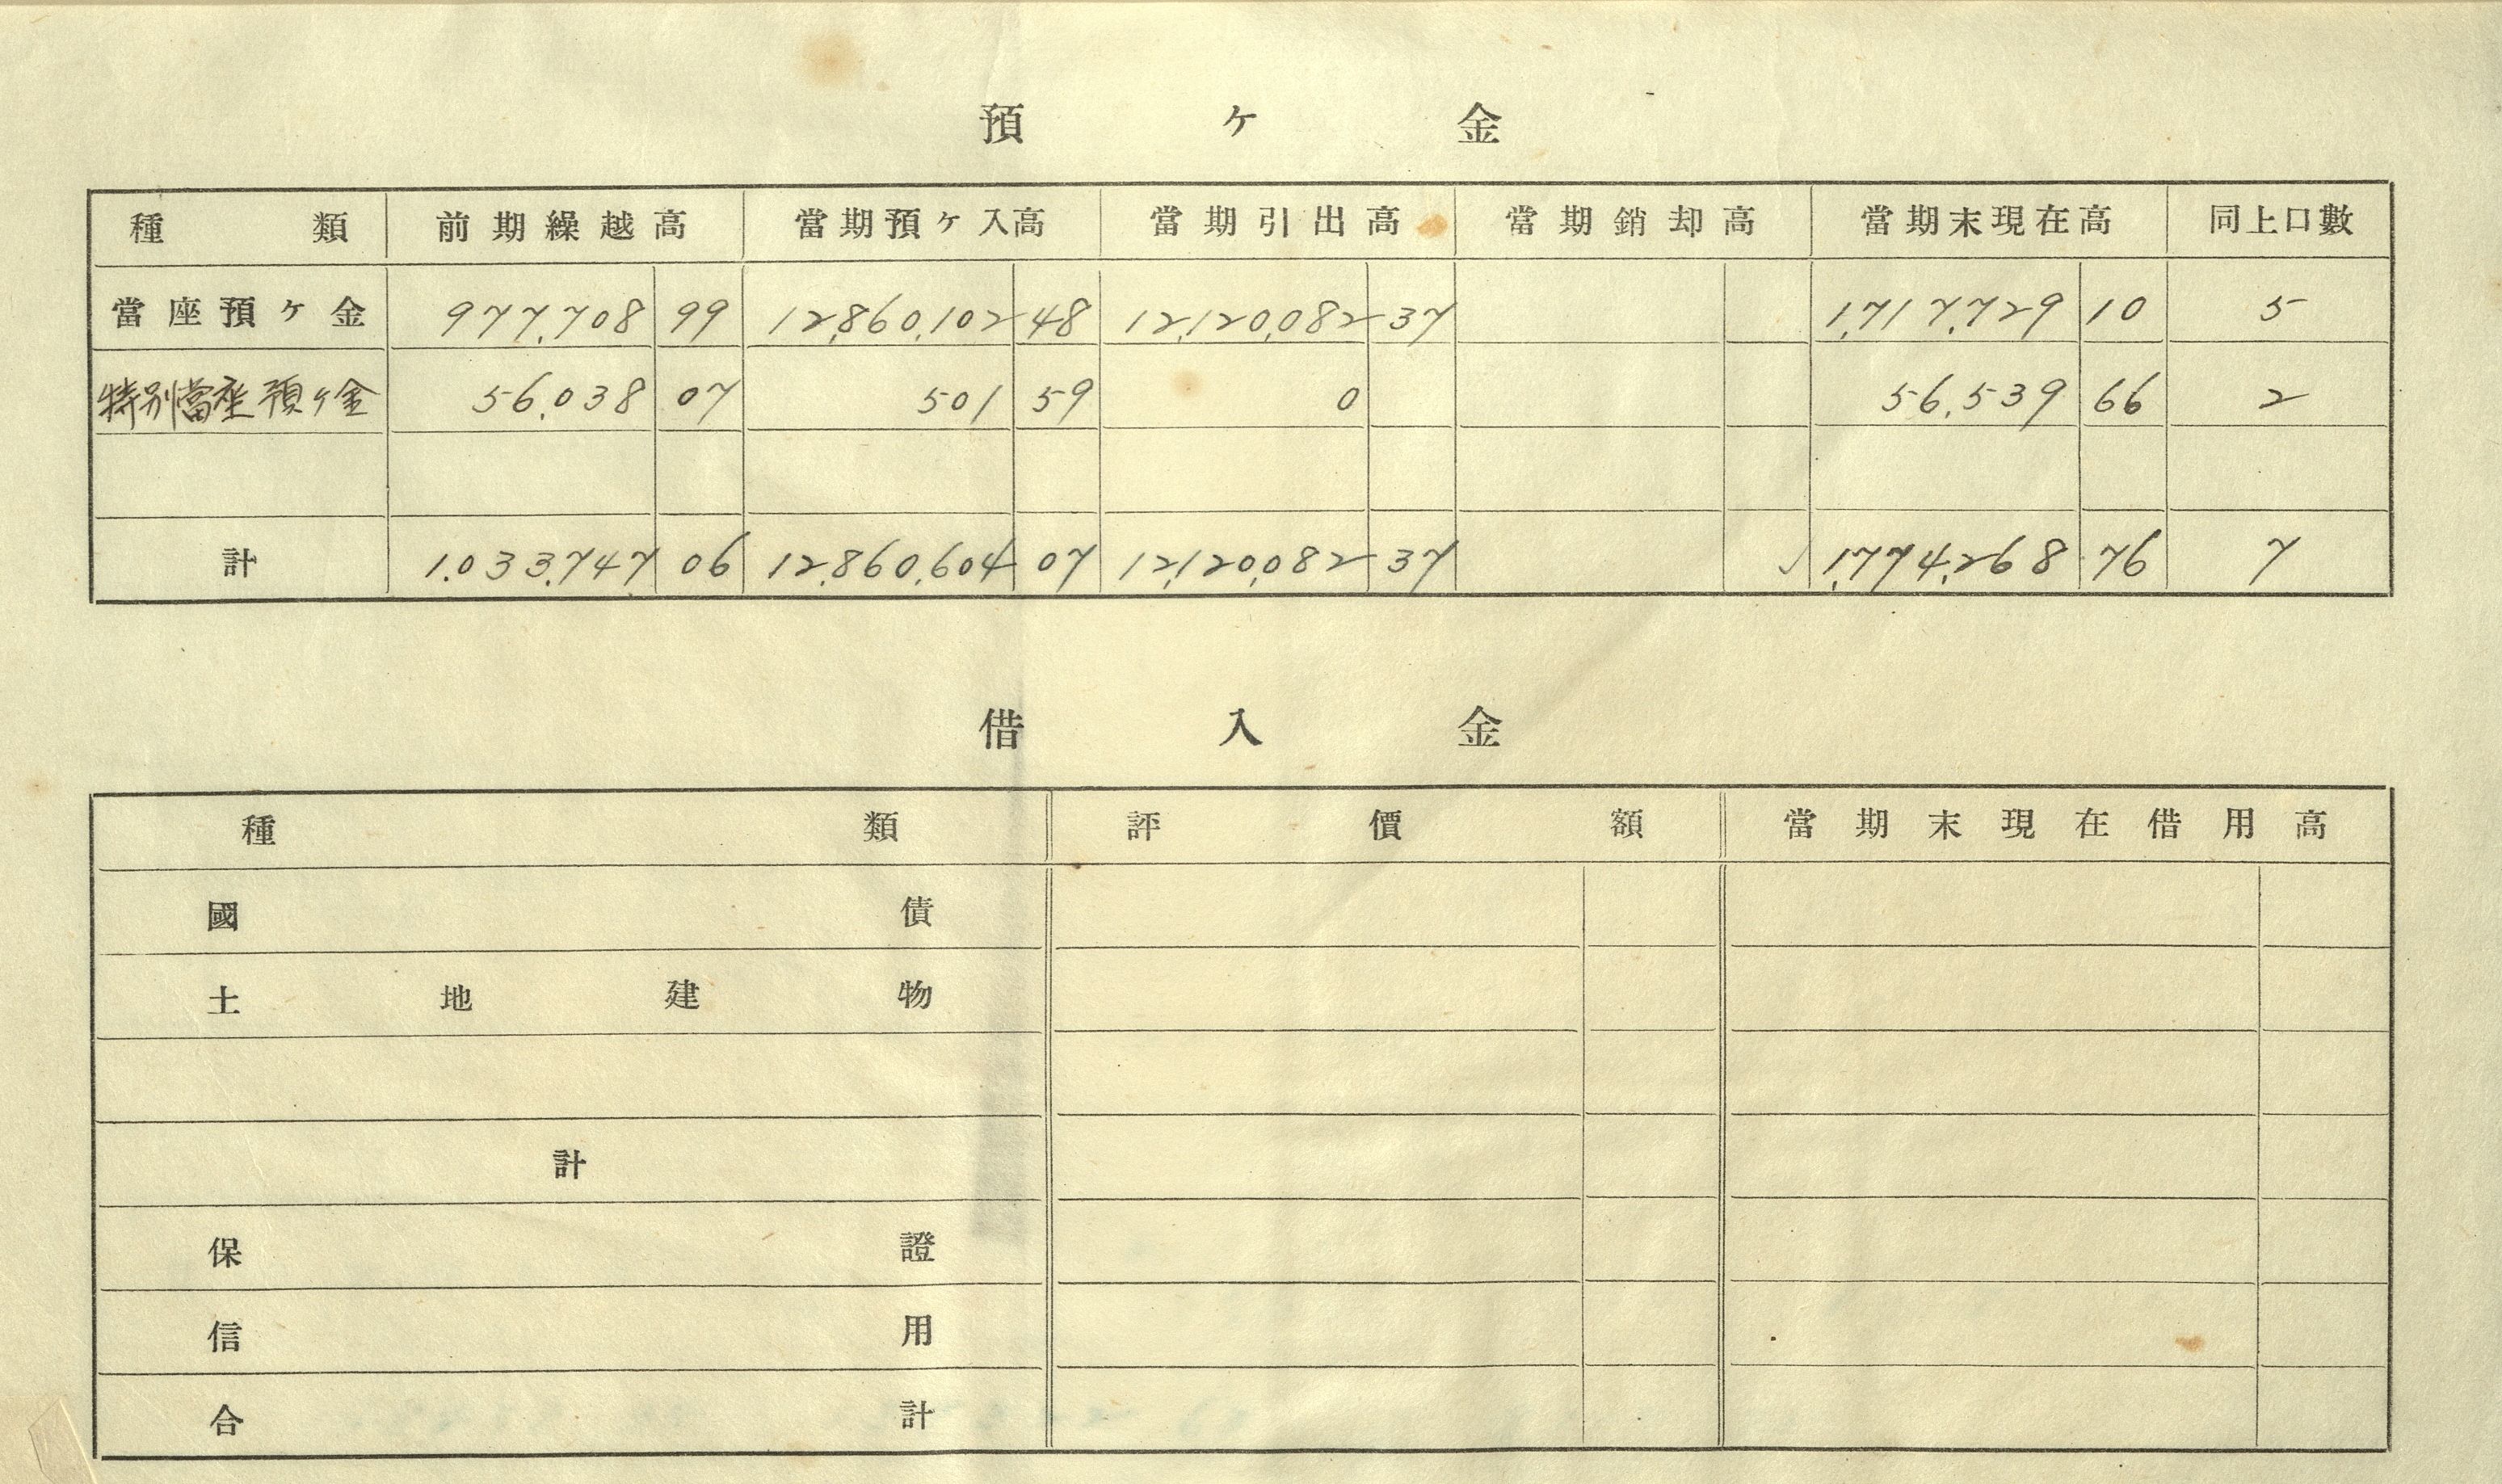 預ヶ金
種類 前期繰越高 當期預ヶ入高 當期引出高 當期銷却高 當期末現在高 同上口數
當座預ヶ金 977,708 99 12,860,102 48 12,120,082 37 1,717,729 10 5
特別當座預ヶ金 56,038 07 501 59 0 56,539 66 2
計 1,033,747 06 12,860,604 07 12,120,082 37 ✓ 1,774,268 76 7
借入金
種類 評價額 當期末現在借用高
國債
土地建物
計
保證
信用
合計